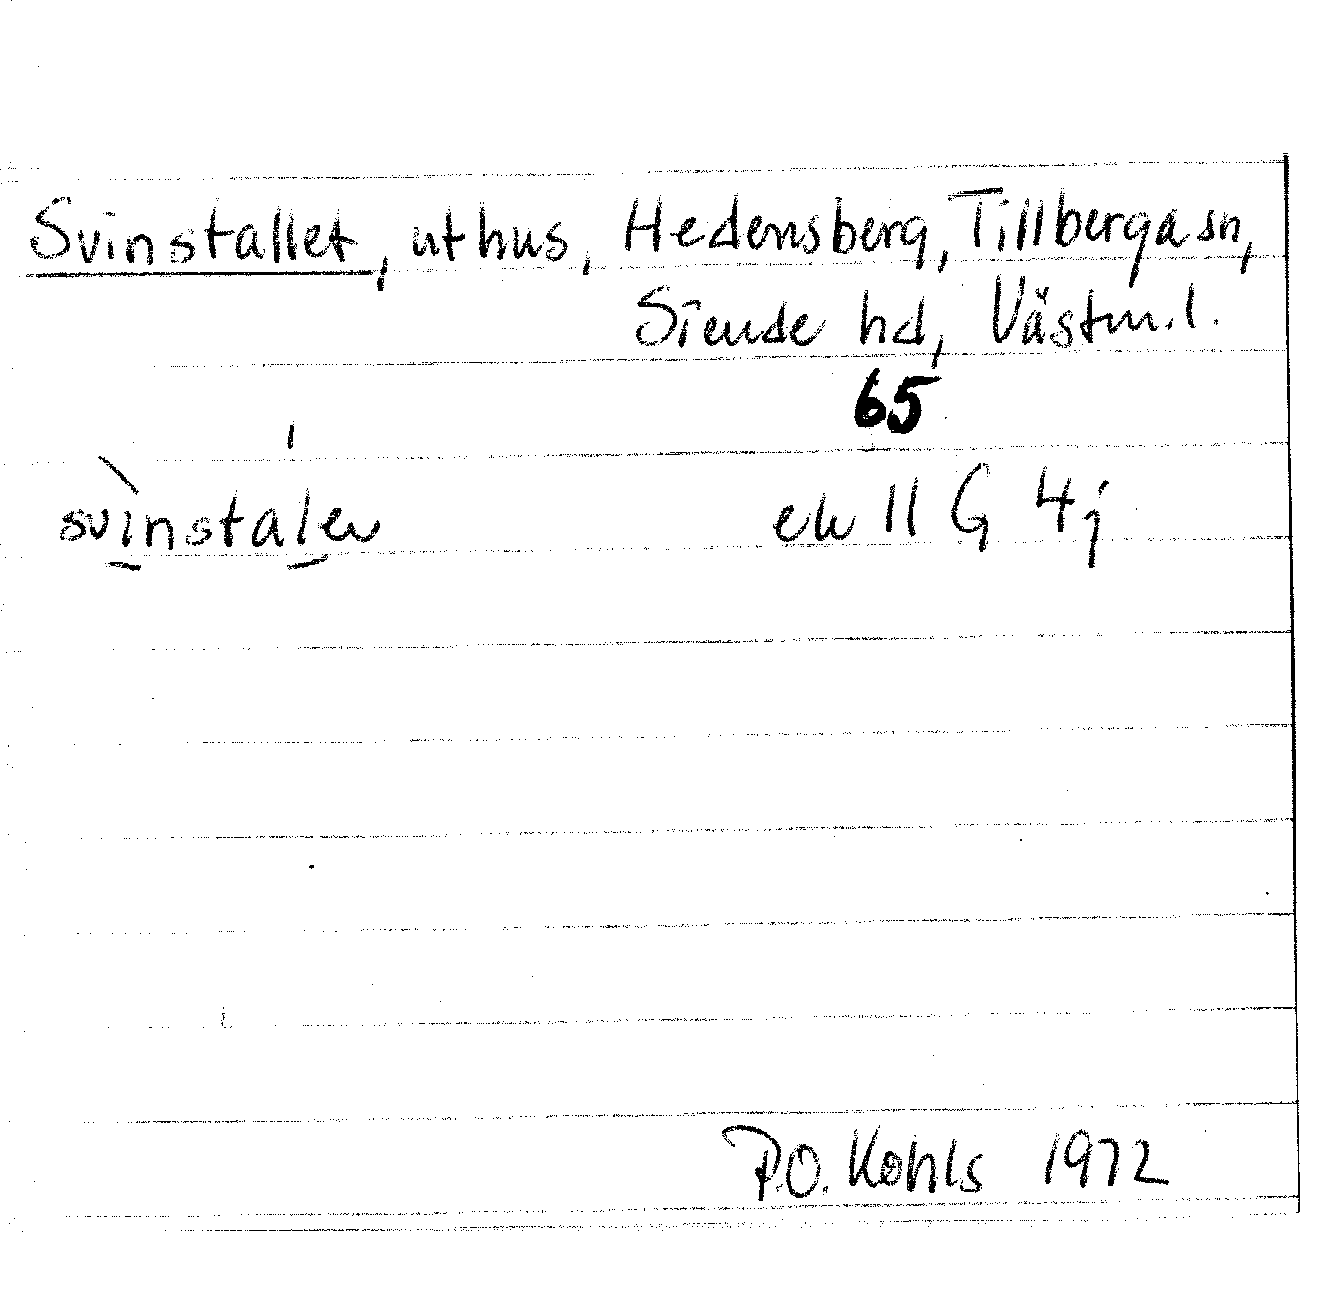 Svinstallet, uthus, Hedensberg, Tillberga sn,
Siende hd, Västm.l.
65
svinstalev
ek 11 G 4j
P.O. Kohls 1972